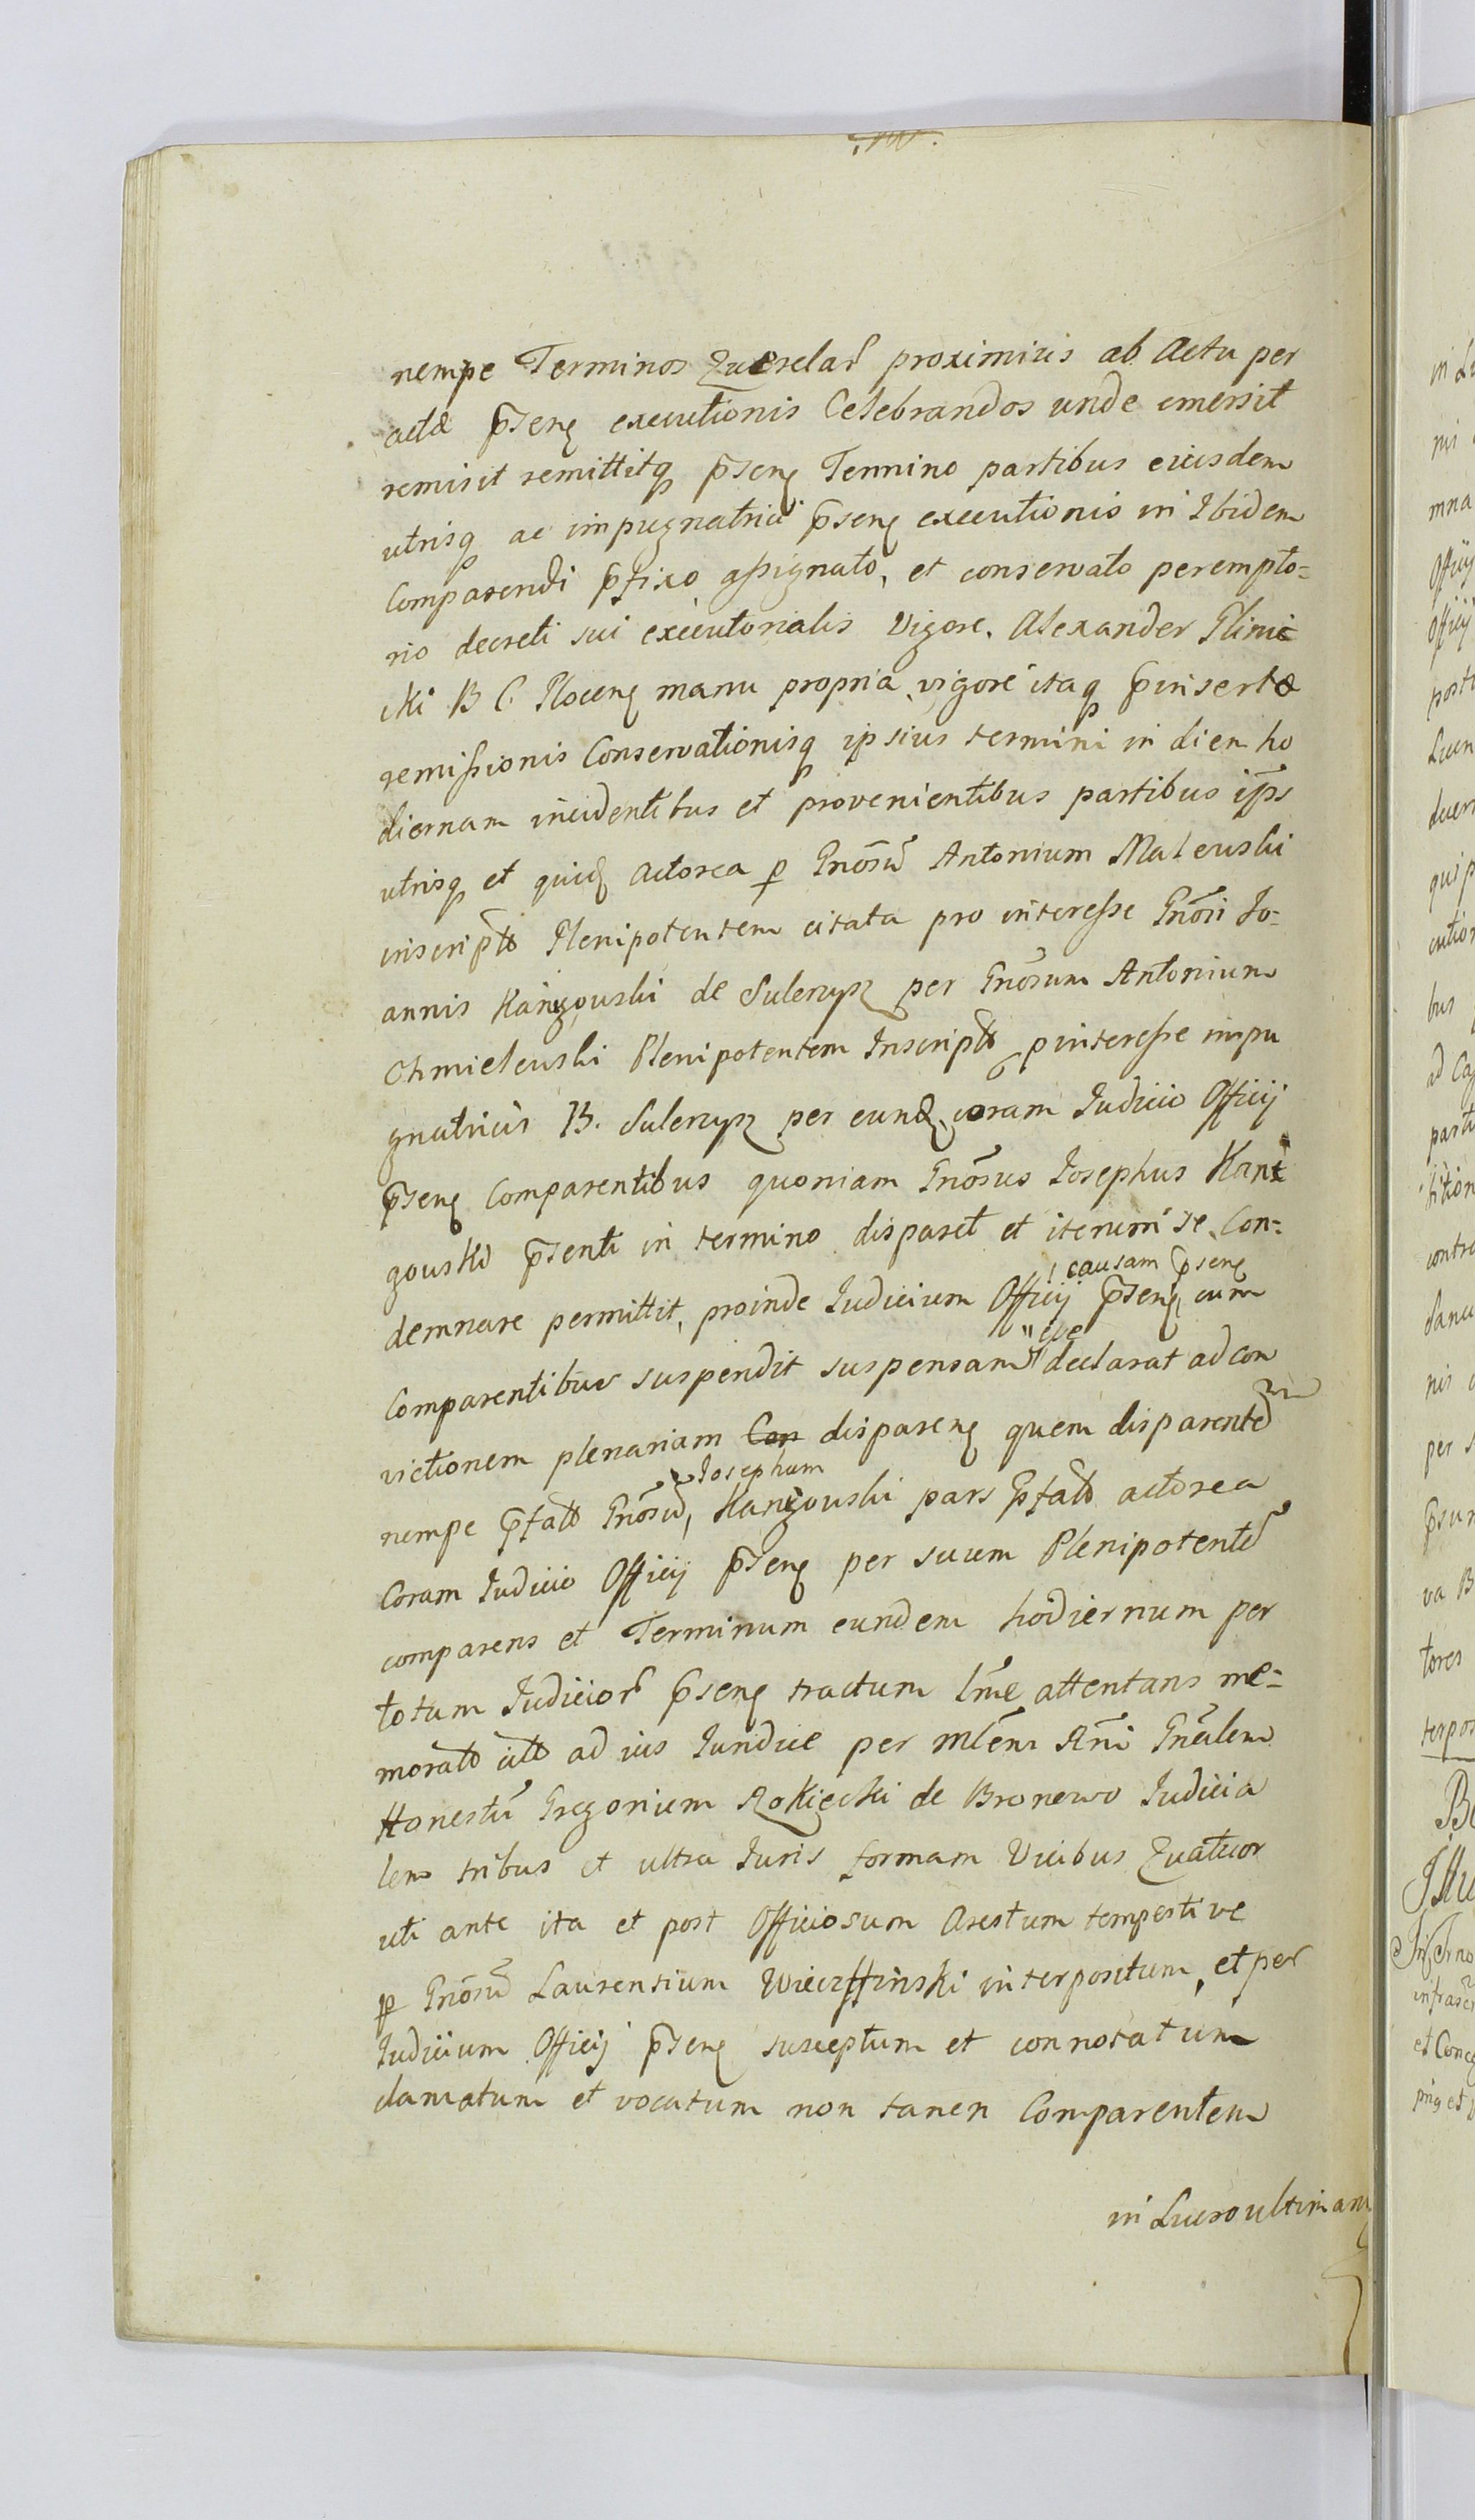 nempe Terminos Querelar̃ proximius ab Actu per
actæ p̃senţ executionis Celebrandos unde emersit
remisit remittitq p̃senţ Termino partibus eiusdem
utrisq ac impugnatrici p̃senţ executionis in Ibidem
Comparendi p̃fixo assignato, et conservato perempto=
rio decreti sui executorialis Vigore. Alexander Glinic
cki B C Plocenţ manu propria, vigore itaq p̃insertæ
remissionis Conservationisq ipsius termini in diem ho
diernam incidentibus et provenientibus partibus ip̃s
utrisq et quidţ Actorea p Gnõsũ Antonium Maleuski
inscriptũ Plenipotentem citata pro interesse Gnõsi Jo=
annis Kanigouski de Suleruyz per Gnõsum Antonium
Chmieleuski Plenipotentem Inscriptũ pinteresse impu
gnatricis B. Suleruyz per eundţ coram Judicio Officij
p̃senţ Comparentibus quoniam Gnõsus Josephus Kani
gouski p̃senti in termino disparet et iterum se Con=
demnare permittit, proinde Judicium Officij p̃senţ cum
causam p̃senţ
Comparentibus suspendit suspensam declarat ad con
victionem plenariam Con disparenţ quem disparentẽ
nempe p̃fatũ Gnõsũ, Kanigouski pars p̃fatũ actorea
Josephum
Coram Judicio Officij p̃senţ per suum Plenipotentẽ
comparens et Terminum eundem hodiernum per
totum Judicior̃ p̃senţ tractum lm̃e attentans me=
moratũ citũ ad ius Juridice per mlẽm Rñi Gnãlem
Honestũ Gregorium Rokięcki de Bronewo Judicia
lem tribus et ultra Juris formam Vicibus Quatuor
uti ante ita et post Officiosum Arestum tempestive
p Gnõsũ Laurentium Wierzffinski interpositum, et per
Judicium Officij p̃senţ susceptum et connotatum
clamatum et vocatum non tanen Comparentem
in Lucro ultimam